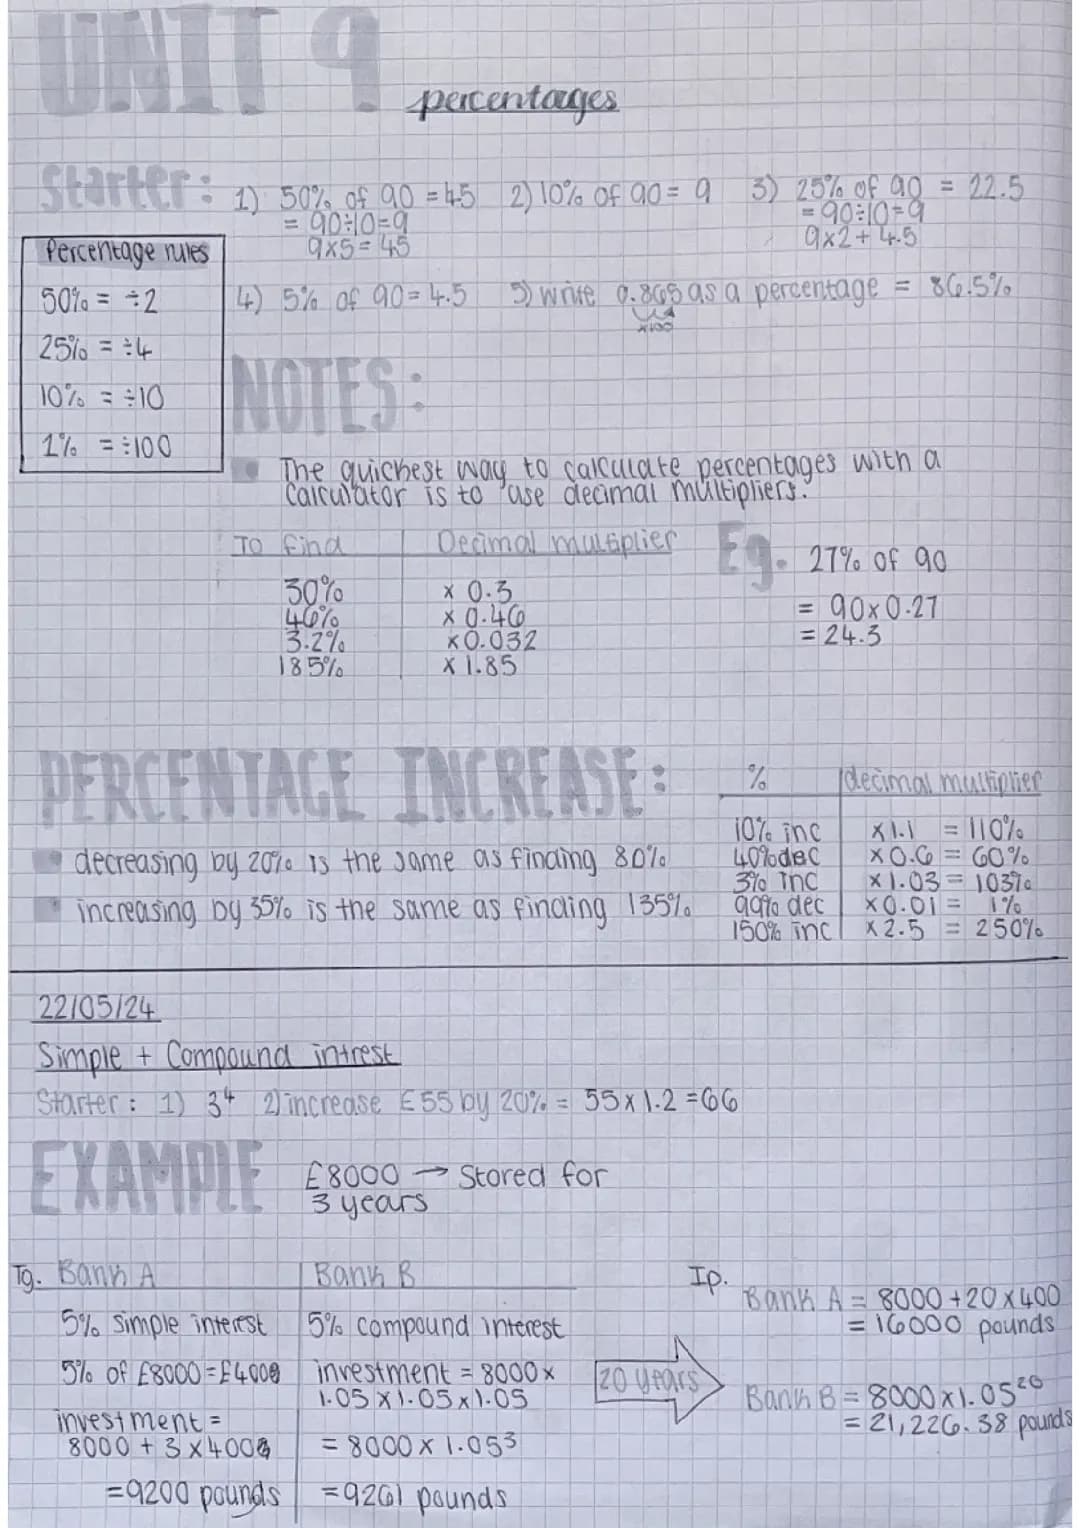 UNIT 9
percentages
Starter: 1) 50% of 90 = 45 2) 10% of 90 = 9 3) 25% of 90 = 22.5
= 90÷10=9 = 90÷10=9
9x5 = 45 9x2 + 4.5
Percentage rules
50% = ÷2
25% = ÷4
10% = ÷10
1% = ÷100
4) 5% of 90 = 4.5 5) write 0.865 as a percentage = 86.5%
x100
NOTES:
The quickest way to calculate percentages with a
calculator is to use decimal multipliers.
To find Decimal multiplier
30% x 0.3
46% x 0.46
3.2% x 0.032
185% x 1.85
Eg. 27% of 90
= 90x0.27
= 24.3
PERCENTAGE INCREASE:
decreasing by 20% is the same as finding 80%
increasing by 35% is the same as finding 135%
% decimal multiplier
10% inc x1.1 = 110%
40% dec x0.6 = 60%
3% inc x1.03 = 103%
99% dec x0.01 = 1%
150% inc x2.5 = 250%
22/05/24
Simple + Compound intrest
Starter: 1) 3⁴ 2) increase £55 by 20% = 55x1.2 = 66
EXAMPLE £8000 → Stored for
3 years
Tg. Bank A
5% simple interest
5% of £8000 = £400
investment =
8000 + 3 x 400
=9200 pounds
Bank B
5% compound interest
investment = 8000 x
1.05 x 1.05 x 1.05
= 8000 x 1.05³
=9261 pounds
20 years
Ip.
Bank A = 8000 + 20 x 400
= 16000 pounds
Bank B = 8000x1.05²⁰
= 21,226.38 pounds